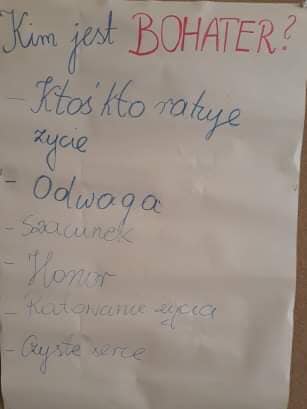 Kim jest BOHATER?
- Ktoś kto ratuje
życie
- Odwaga
- Szacunek
- Honor
- Ratowanie życia
- Czyste serce